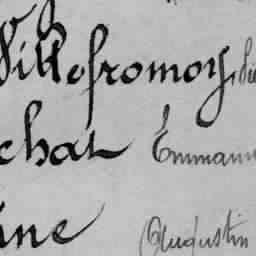 Villefromoy,
chat Emmanu
ine Augustin